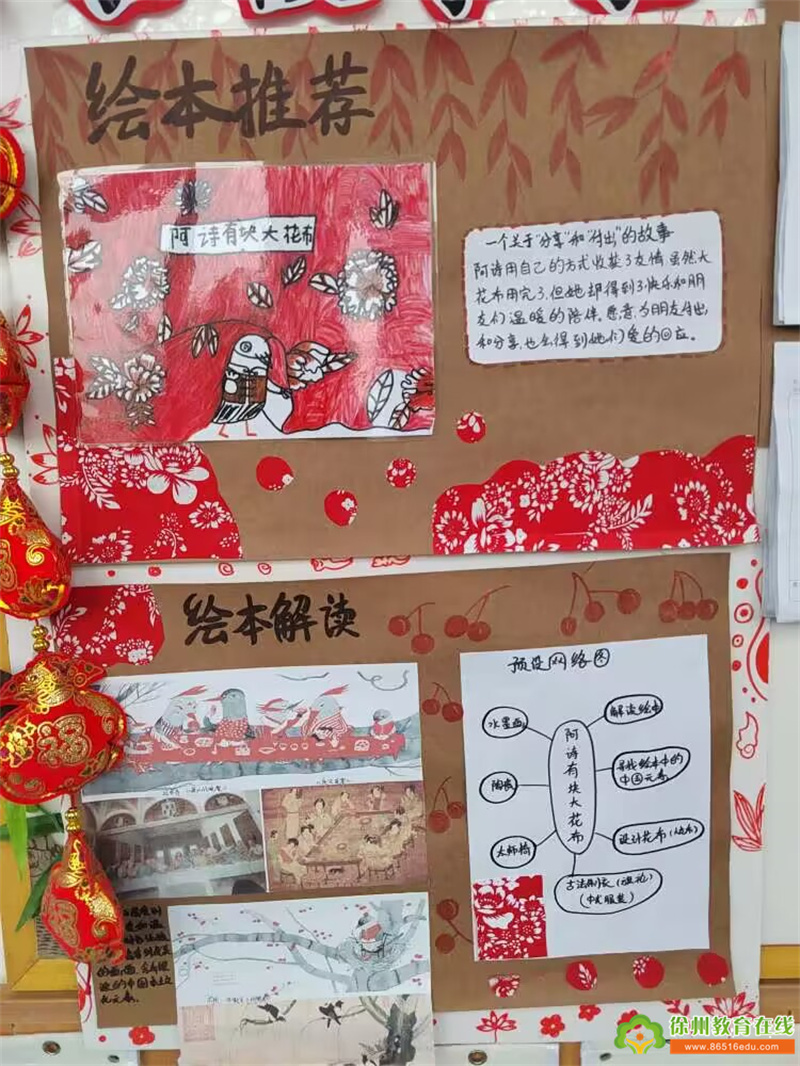 绘本推荐
阿诗有块大花布
一个关于“分享”和“付出”的故事
阿诗用自己的方式收获了友情.虽然大
花布用完了,但她却得到了快乐和朋
友们温暖的陪伴.愿意为朋友付出
和分享,也会得到她们爱的回应。
绘本解读
预设网络图
水墨画
陶瓷
太师椅
阿诗有块大花布
解读绘本
寻找绘本中的
中国元素
设计花布
古法制衣
(中式服装)
福
徐州教育在线
www.86516edu.com